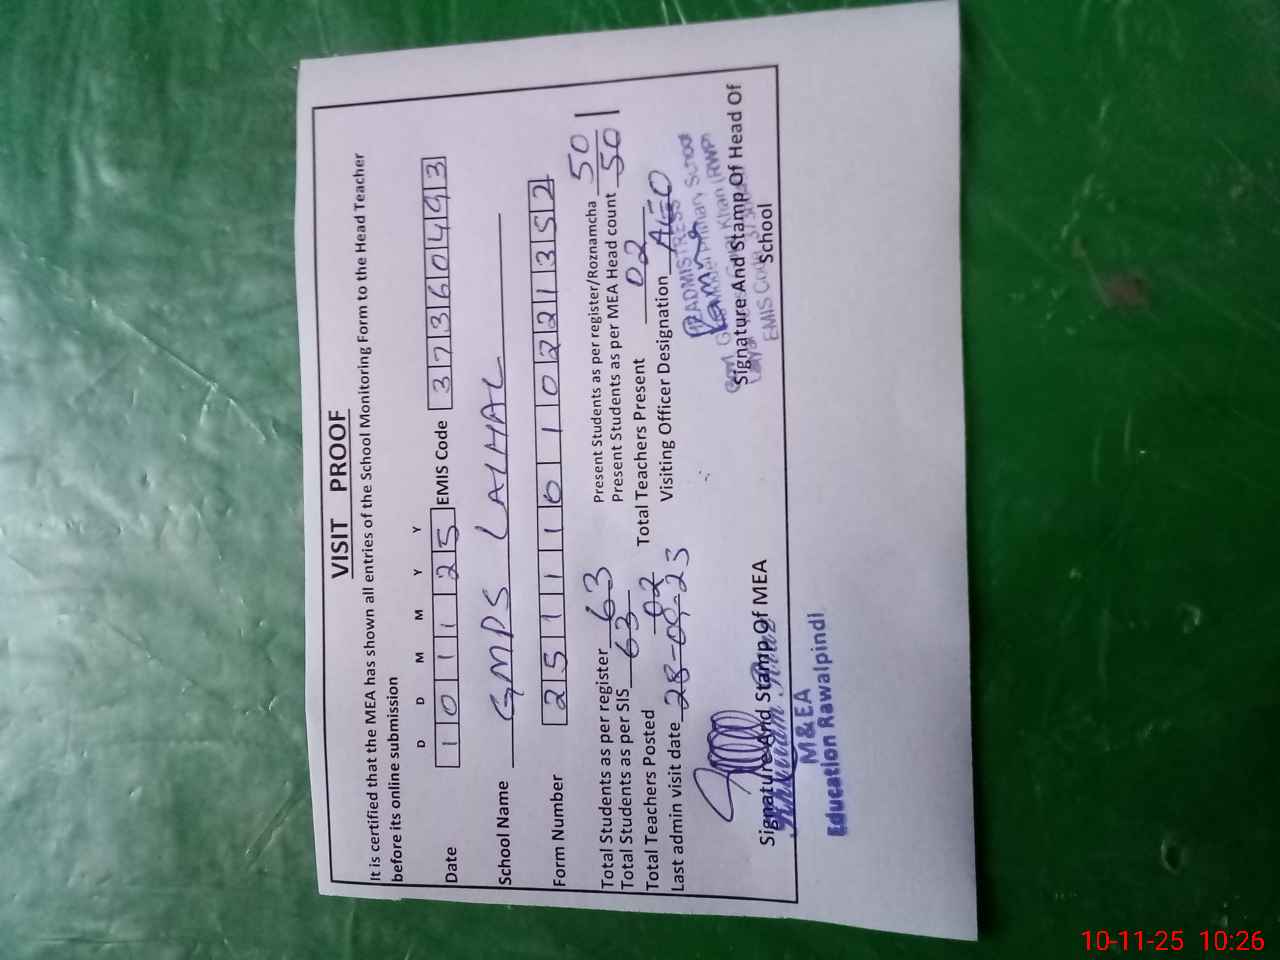 VISIT PROOF
It is certified that the MEA has shown all entries of the School Monitoring Form to the Head Teacher
before its online submission
D D M M Y Y
Date 1 0 1 1 2 5 EMIS Code 3 7 3 6 0 4 9 3
School Name GMPS LAIHAL
Form Number 2 5 1 1 1 6 1 0 2 2 1 3 5 2
Total Students as per register 63 Present Students as per register/Roznamcha 50
Total Students as per SIS 63 Present Students as per MEA Head count 50
Total Teachers Posted 02 Total Teachers Present 02
Last admin visit date 28-09-23 Visiting Officer Designation AEO
Signature And Stamp Of MEA
Signature And Stamp Of Head Of
School
M & EA
Education Rawalpindi
HEADMISTRESS
Primary School
Khan (RWP)
EMIS Code
10-11-25 10:26